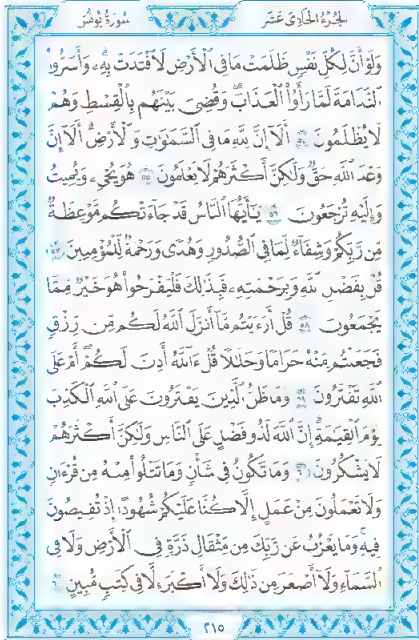 الجزء الحادي عشر
سورة يونس
وَلَوْ أَنَّ لِكُلِّ نَفْسٍ ظَلَمَتْ مَا فِي ٱلْأَرْضِ لَٱفْتَدَتْ بِهِۦ وَأَسَرُّوا۟
ٱلنَّدَامَةَ لَمَّا رَأَوُا۟ ٱلْعَذَابَ وَقُضِيَ بَيْنَهُم بِٱلْقِسْطِ وَهُمْ
لَا يُظْلَمُونَ ٥٤ أَلَآ إِنَّ لِلَّهِ مَا فِي ٱلسَّمَٰوَٰتِ وَٱلْأَرْضِ أَلَآ إِنَّ
وَعْدَ ٱللَّهِ حَقٌّ وَلَٰكِنَّ أَكْثَرَهُمْ لَا يَعْلَمُونَ ٥٥ هُوَ يُحْيِۦ وَيُمِيتُ
وَإِلَيْهِ تُرْجَعُونَ ٥٦ يَٰٓأَيُّهَا ٱلنَّاسُ قَدْ جَآءَتْكُم مَّوْعِظَةٌ
مِّن رَّبِّكُمْ وَشِفَآءٌ لِّمَا فِي ٱلصُّدُورِ وَهُدًى وَرَحْمَةٌ لِّلْمُؤْمِنِينَ ٥٧
قُلْ بِفَضْلِ ٱللَّهِ وَبِرَحْمَتِهِۦ فَبِذَٰلِكَ فَلْيَفْرَحُوا۟ هُوَ خَيْرٌ مِّمَّا
يَجْمَعُونَ ٥٨ قُلْ أَرَءَيْتُم مَّآ أَنزَلَ ٱللَّهُ لَكُم مِّن رِّزْقٍ
فَجَعَلْتُم مِّنْهُ حَرَامًا وَحَلَٰلًا قُلْ ءَآللَّهُ أَذِنَ لَكُمْ أَمْ عَلَى
ٱللَّهِ تَفْتَرُونَ ٥٩ وَمَا ظَنُّ ٱلَّذِينَ يَفْتَرُونَ عَلَى ٱللَّهِ ٱلْكَذِبَ
يَوْمَ ٱلْقِيَٰمَةِ إِنَّ ٱللَّهَ لَذُو فَضْلٍ عَلَى ٱلنَّاسِ وَلَٰكِنَّ أَكْثَرَهُمْ
لَا يَشْكُرُونَ ٦٠ وَمَا تَكُونُ فِي شَأْنٍ وَمَا تَتْلُوا۟ مِنْهُ مِن قُرْءَانٍ
وَلَا تَعْمَلُونَ مِنْ عَمَلٍ إِلَّا كُنَّا عَلَيْكُمْ شُهُودًا إِذْ تُفِيضُونَ
فِيهِ وَمَا يَعْزُبُ عَن رَّبِّكَ مِن مِّثْقَالِ ذَرَّةٍ فِي ٱلْأَرْضِ وَلَا فِي
ٱلسَّمَآءِ وَلَآ أَصْغَرَ مِن ذَٰلِكَ وَلَآ أَكْبَرَ إِلَّا فِي كِتَٰبٍ مُّبِينٍ ٦١
٢١٥